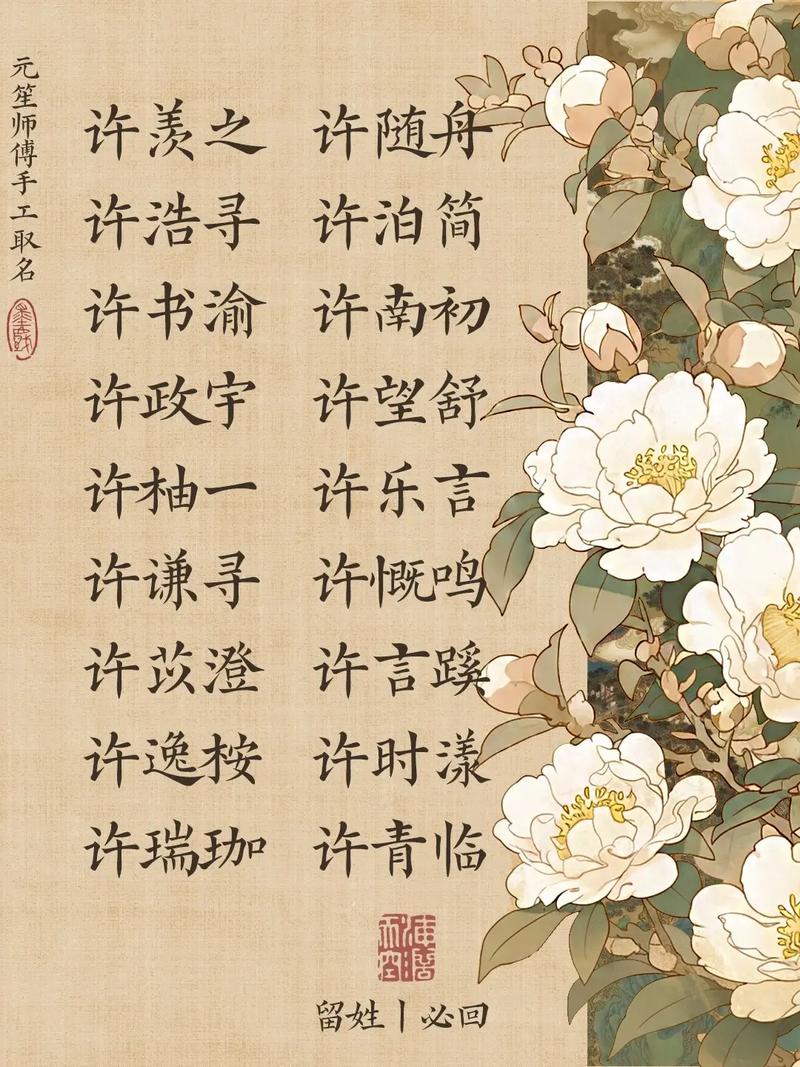 元笙师傅手工取名
许羡之 许随舟
许浩寻 许泊简
许书渝 许南初
许政宇 许望舒
许柚一 许乐言
许谦寻 许慨鸣
许苡澄 许言蹊
许逸桉 许时漾
许瑞珈 许青临
留姓丨必回